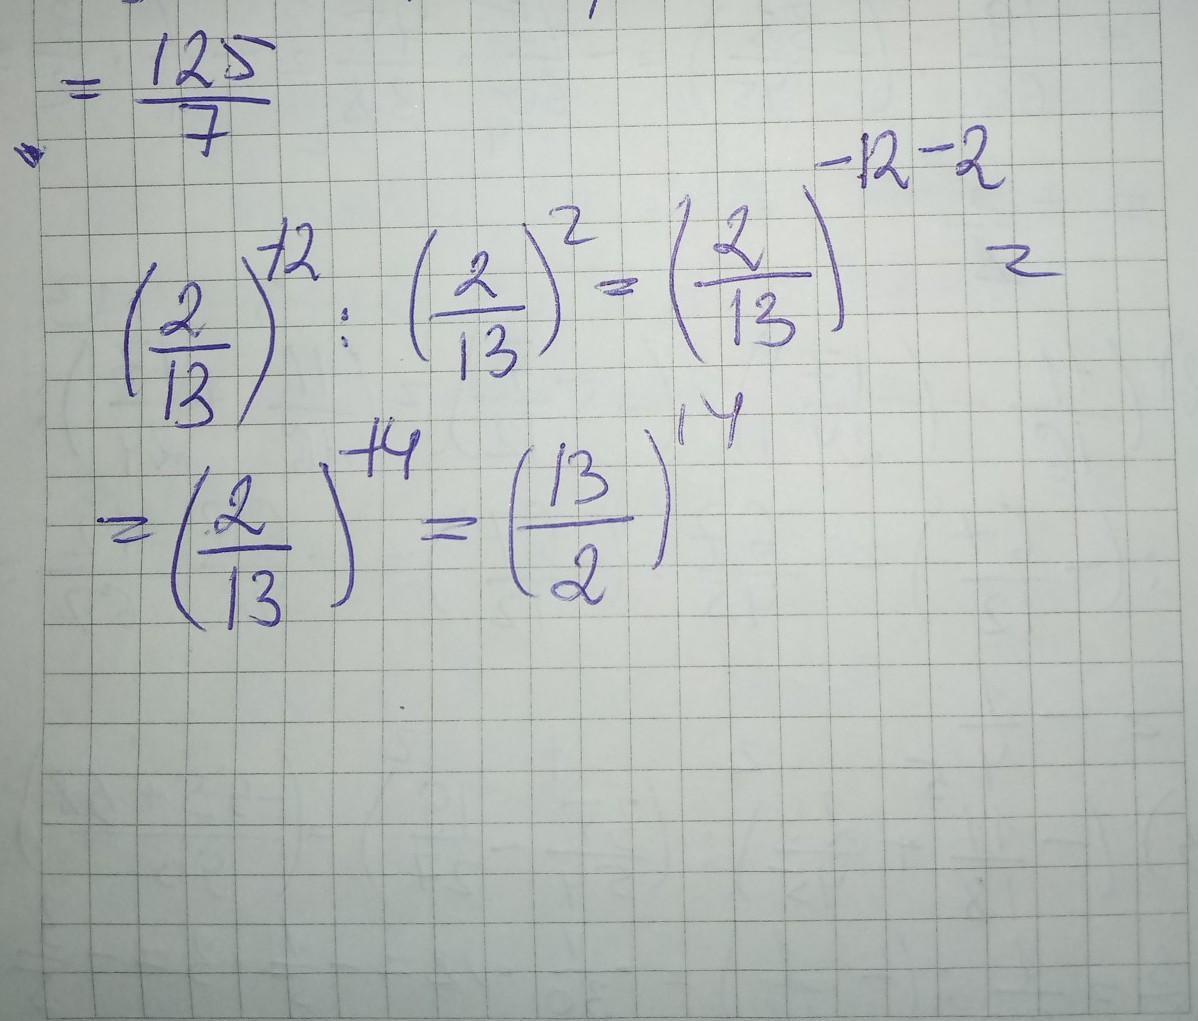 = 125/7
(2/13)^-12 : (2/13)^2 = (2/13)^-12-2 =
= (2/13)^-14 = (13/2)^14